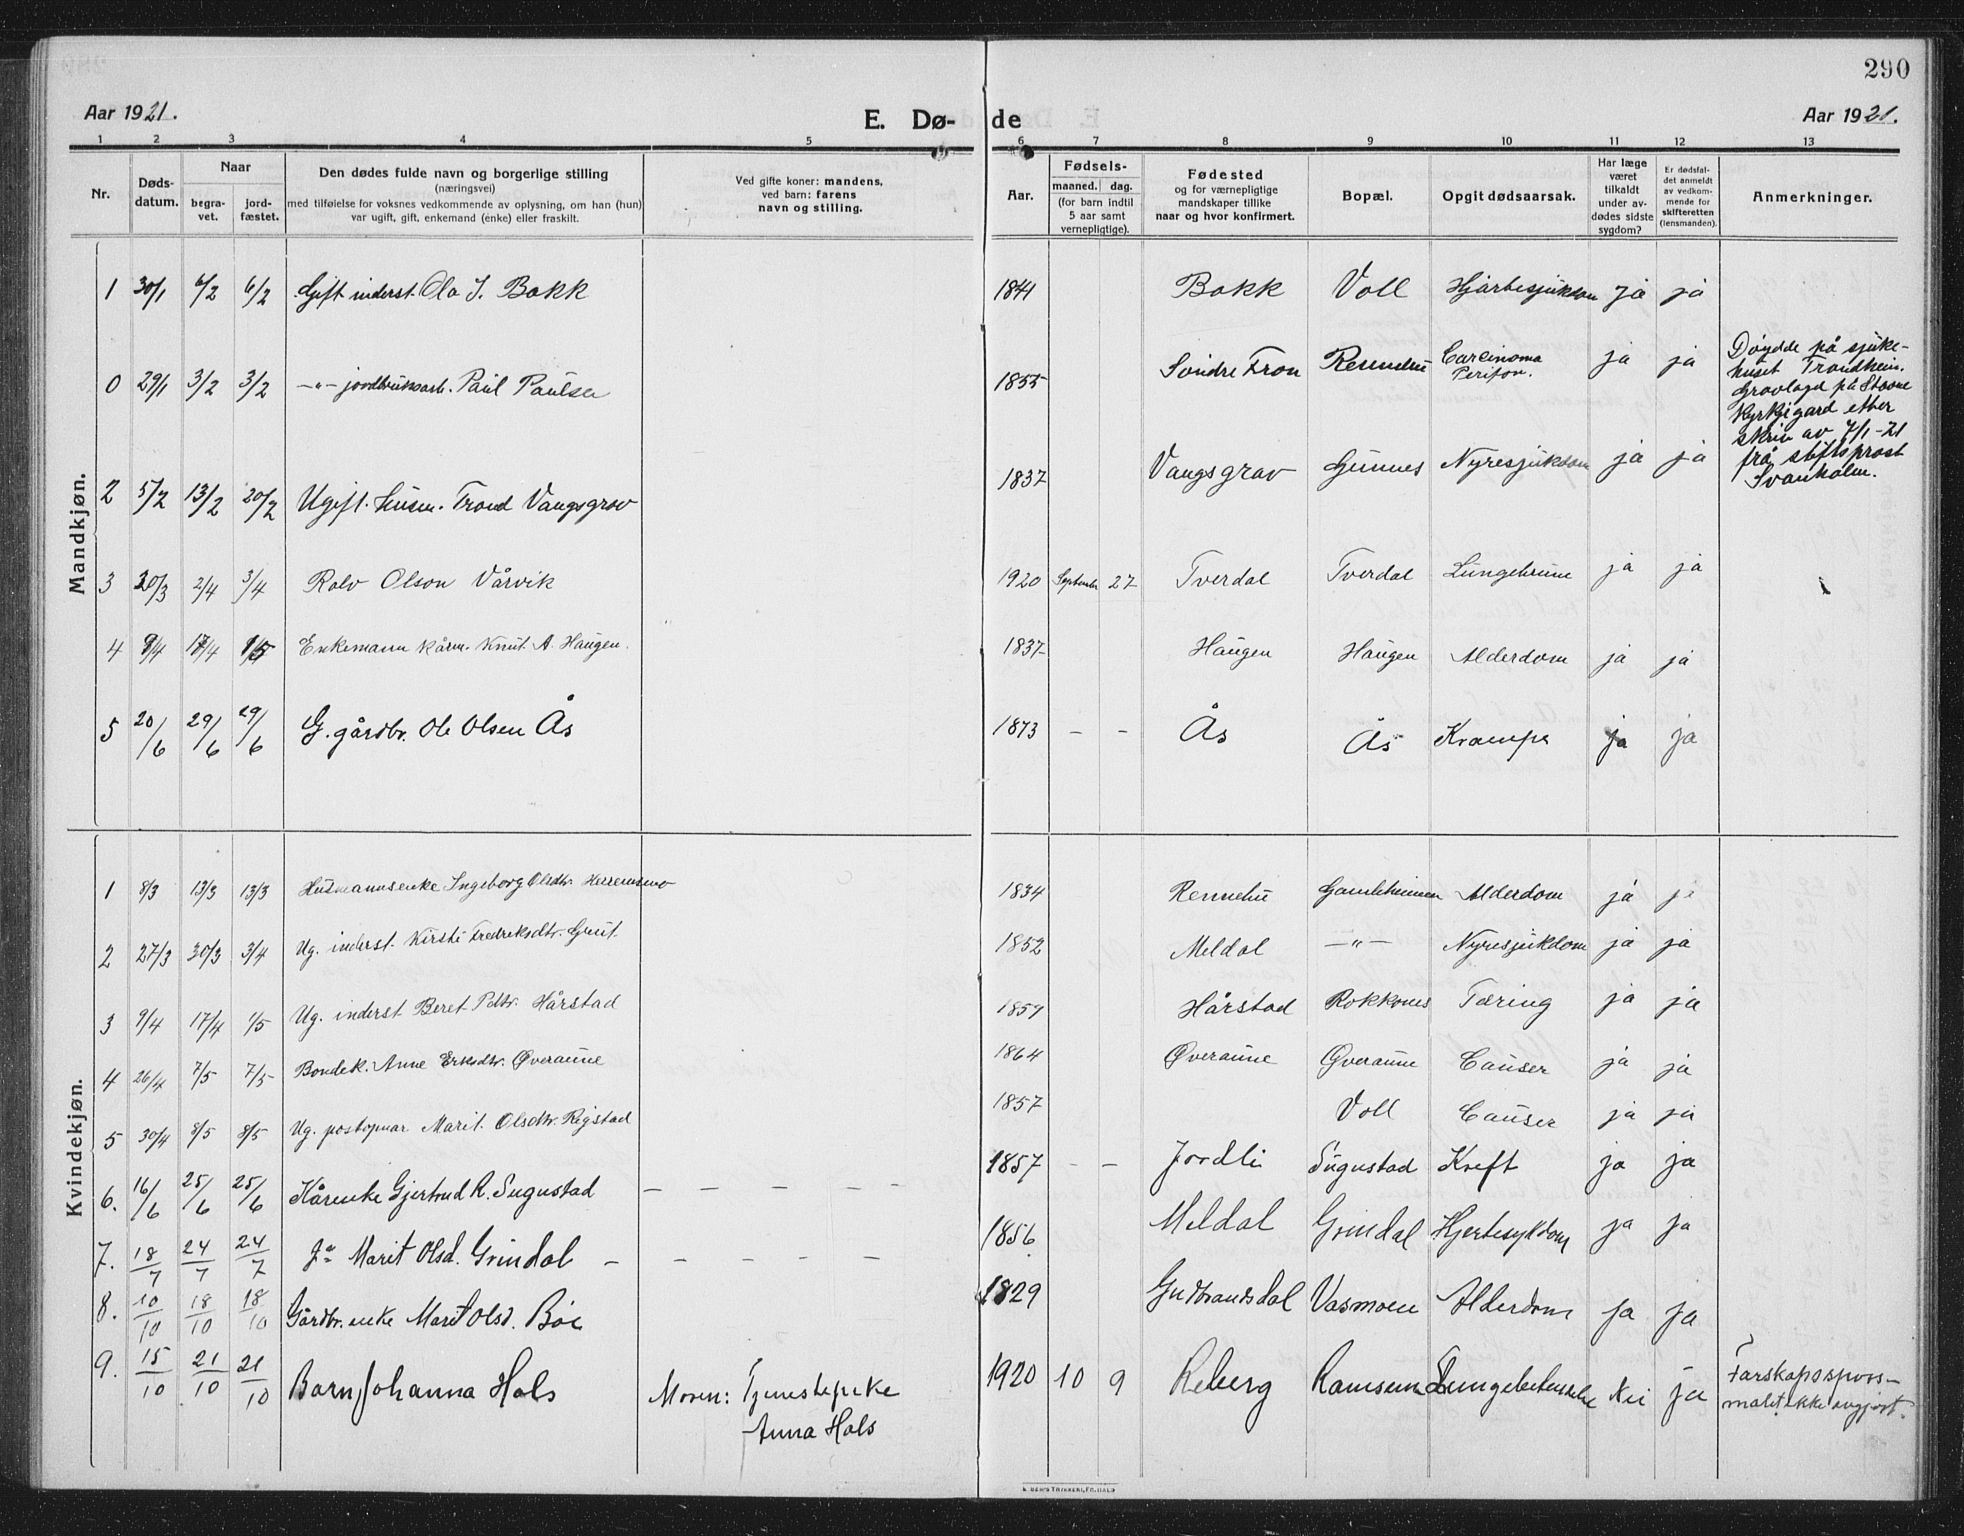 290
Aar 1921.
E. Dø-
de
Aar 1921.
1 2 3 4 5 6 7 8 9 10 11 12 13
Nr.
Døds-
datum.
Naar
begra-
vet.
jord-
fæstet.
Den dødes fulde navn og borgerlige stilling
(næringsvei)
med tilføielse for voksnes vedkommende av oplysning, om han (hun)
var ugift, gift, enkemand (enke) eller fraskilt.
Ved gifte koner: mandens,
ved barn: farens
navn og stilling.
Aar.
Fødsels-
maaned. dag.
(for barn indtil
5 aar samt
vernepligtige).
Fødested
og for værnepligtige
mandskaper tillike
naar og hvor konfirmert.
Bopæl.
Opgit dødsaarsak.
Har læge
været
tilkaldt
under av-
dødes sidste
sygdom?
Er dødsfal-
det anmeldt
av vedkom-
mende for
skifteretten
(lensmanden).
Anmerkninger.
Mandkjøn.
1 30/1 6/2 6/2 Gift inderst. Ola J. Bakk 1841 Bakk Voll Hjartesjukdom ja ja
0 29/1 3/2 3/2 —"— jordbruksarb. Paul Paulsen 1855 Søndre Fron Rennebu Carcinoma ja ja
Døydde på sjuke-
huset Trondheim.
Gravlagd på Stavne
Kyrkjegard etter
skriv av 7/1-21
frå stiftsprost
Svanholm.
2 5/2 13/2 20/2 Ugift. Husm. Trond Vangsgrav 1837 Vangsgrav Gunnes Nyresjukdom ja ja
3 30/3 2/4 3/4 Rolv Olson Vårvik 1920 September 27 Tverdal Tverdal Lungebrune ja ja
4 9/4 17/4 1/5 Enkemann kårm. Knut A. Haugen. 1837 Haugen Haugen Alderdom ja ja
5 20/6 29/6 29/6 G. gårdbr. Ole Olsen Ås 1873 – – Ås Ås Krampe ja ja
Kvindekjøn.
1 8/3 13/3 13/3 Husmannsenke Ingeborg Olsdtr. Herremsmo 1834 Rennebu Gamleheimen Alderdom ja ja
2 27/3 30/3 3/4 Ug. inderst. Kirsti Fredriksdtr. Grut. 1852 Meldal —"— Nyresjukdom ja ja
3 9/4 17/4 1/5 Ug. inderst Beret Pdtr. Hårstad 1859 Hårstad Rokkones Tæring ja ja
4 26/4 7/5 7/5 Bondek. Anne Eriksdtr. Øveraune 1864 Øveraune Øveraune Causer ja ja
5 30/4 8/5 8/5 Ug. postopnar Marit Olsdtr. Rigstad 1857 Voll Causer ja ja
6. 16/6 25/6 25/6 Kårenke Gjertrud R. Sugustad — — — — — 1857 – – Jordli Sugustad Kreft ja ja
7. 18/7 24/7 24/7 Marit Olsd. Grindal — — — — 1856 Meldal Grindal Hjertesykdom ja ja
8. 10/10 18/10 18/10 Gårdbr. enke Marit Olsd. Bøe 1829 Gudbrandsdal Vasmoen Alderdom ja ja
9. 15/10 21/10 21/10 Barn Johanna Hols Moren: Tjenestepike 1920 10 9 Reberg Ramsem Lungebetendelse Nei ja
Anna Hols
Farskapsspørs-
målet ikke avgjort.